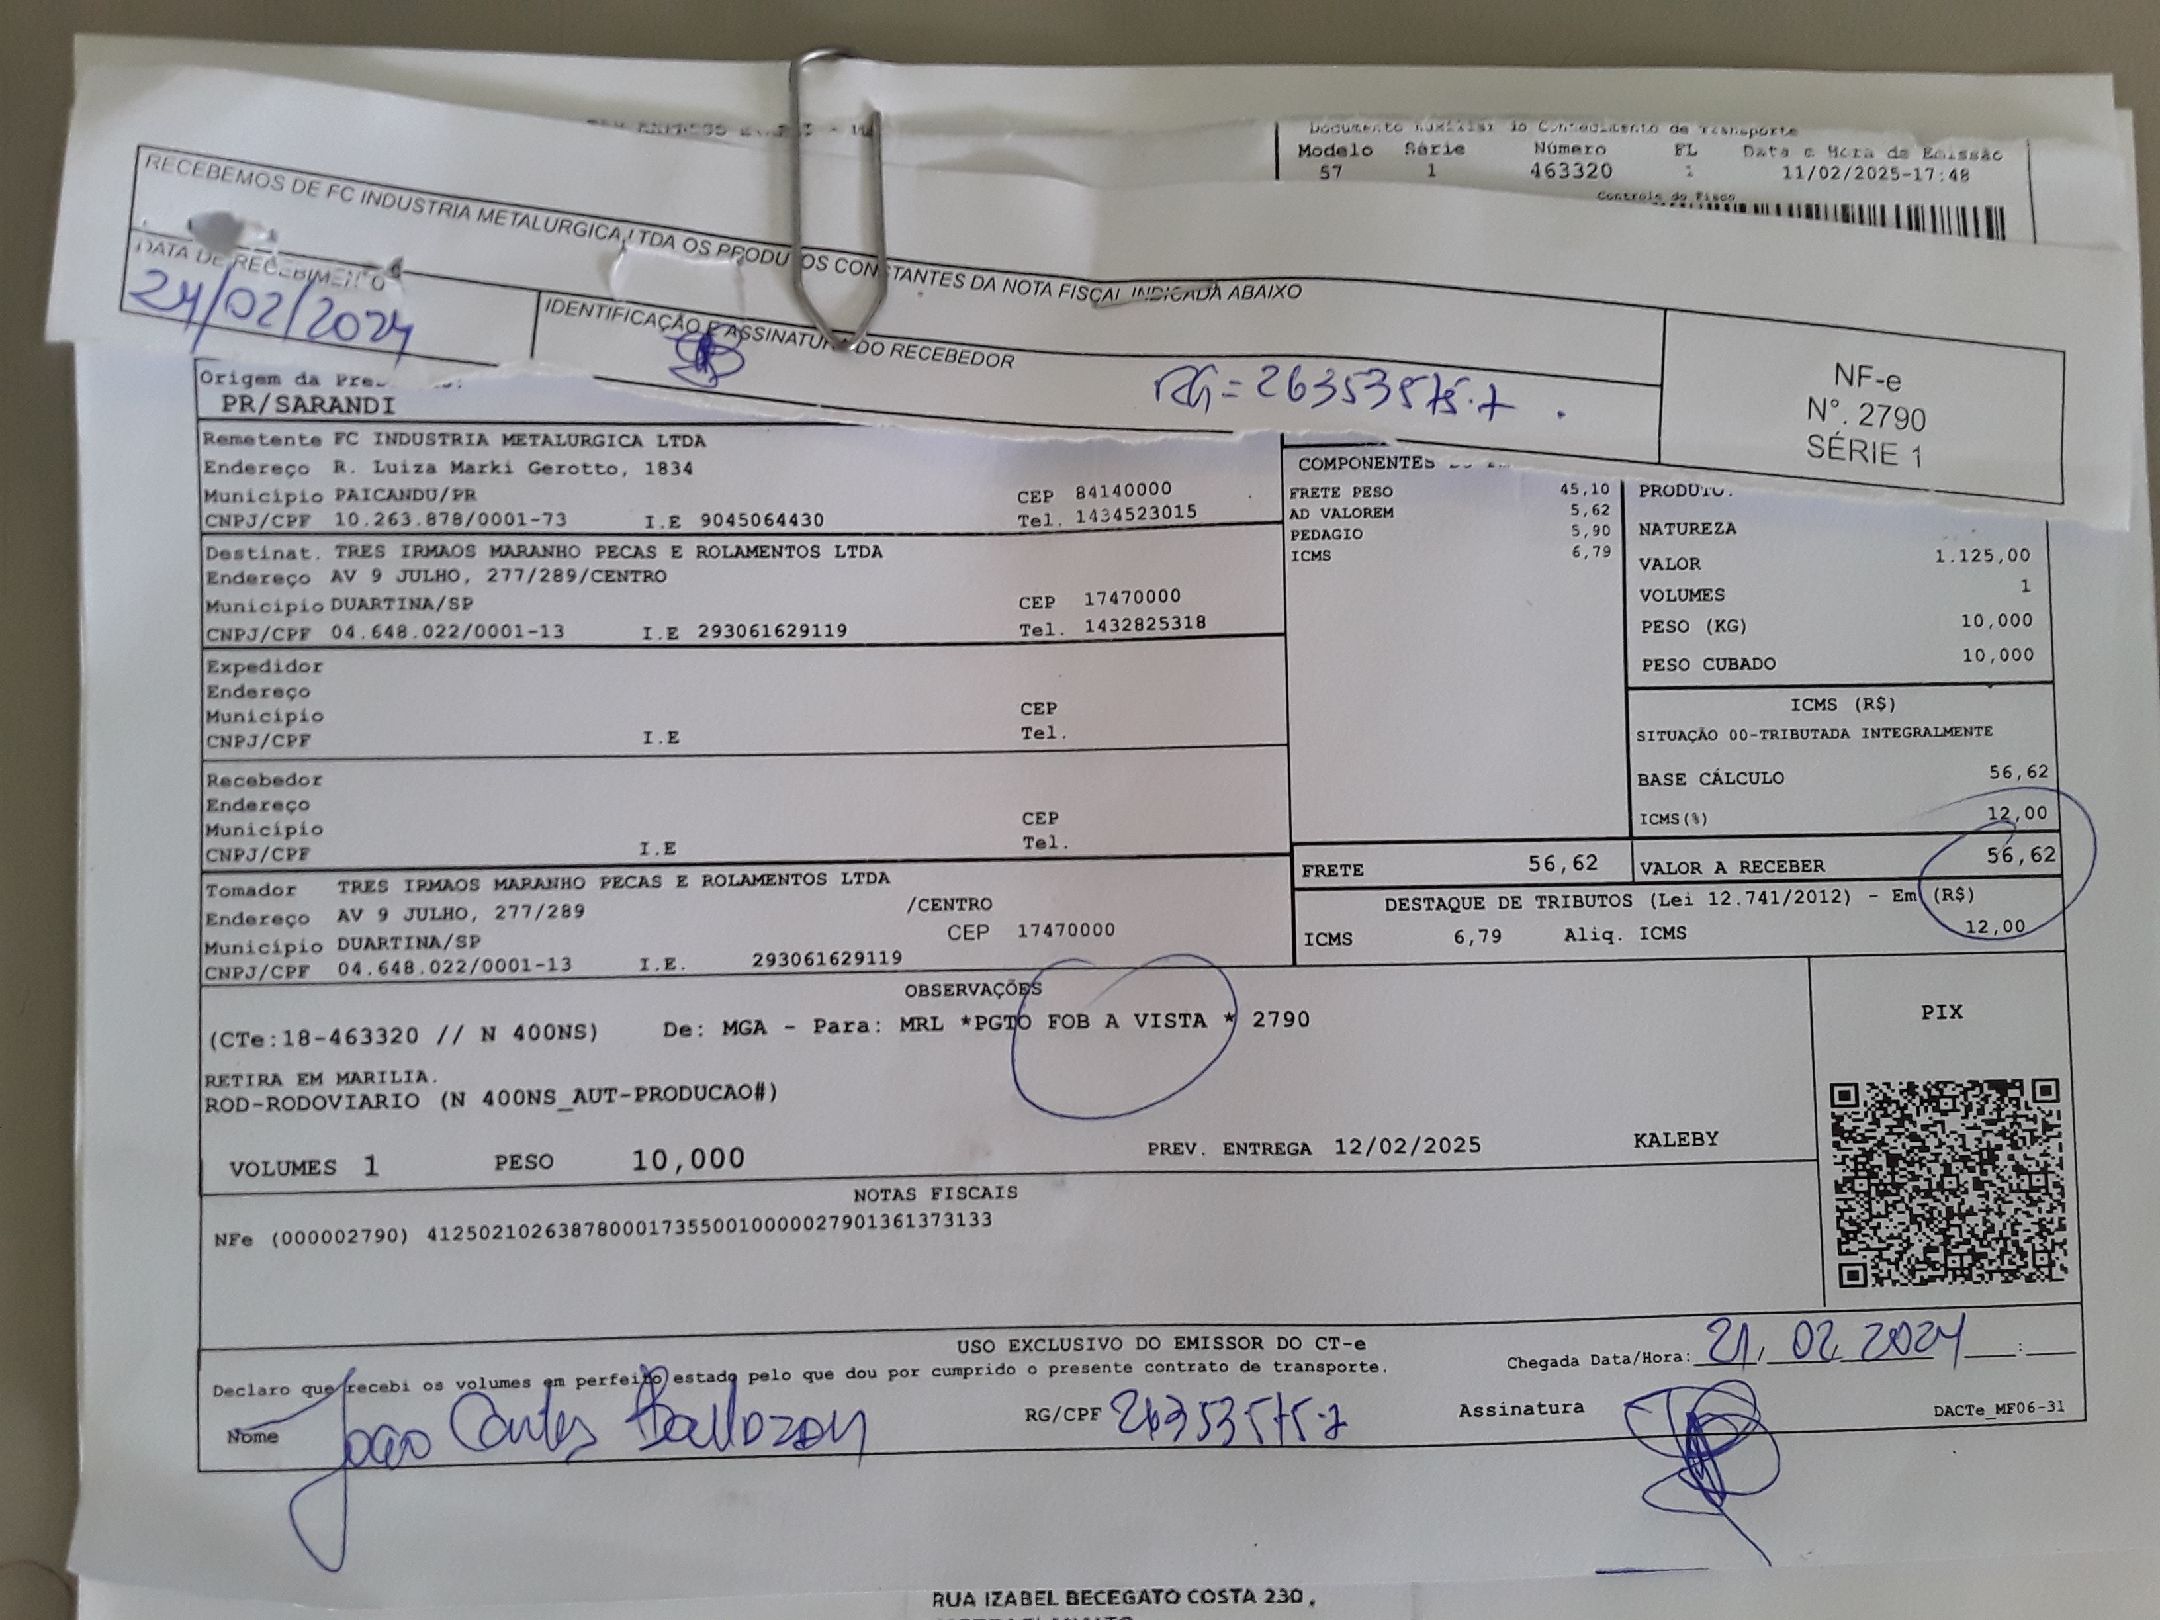 Documento Auxiliar do Conhecimento de Transporte
Modelo Série Número FL Data e Hora de Emissão
57 1 463320 1 11/02/2025-17:48
Controle do Fisco
RECEBEMOS DE FC INDUSTRIA METALURGICA LTDA OS PRODUTOS CONSTANTES DA NOTA FISCAL INDICADA ABAIXO
DATA DE RECEBIMENTO
24/02/2024
IDENTIFICAÇÃO E ASSINATURA DO RECEBEDOR
RG = 26353575-7
NF-e
Nº. 2790
SÉRIE 1
Origem da
PR/SARANDI
Remetente FC INDUSTRIA METALURGICA LTDA
Endereço R. Luiza Marki Gerotto, 1834
Município PAICANDU/PR CEP 84140000
CNPJ/CPF 10.263.878/0001-73 I.E 9045064430 Tel. 1434523015
Destinat. TRES IRMAOS MARANHO PECAS E ROLAMENTOS LTDA
Endereço AV 9 JULHO, 277/289/CENTRO
Município DUARTINA/SP CEP 17470000
CNPJ/CPF 04.648.022/0001-13 I.E 293061629119 Tel. 1432825318
Expedidor
Endereço
Município CEP
CNPJ/CPF I.E Tel.
Recebedor
Endereço
Município CEP
CNPJ/CPF I.E Tel.
Tomador TRES IRMAOS MARANHO PECAS E ROLAMENTOS LTDA
Endereço AV 9 JULHO, 277/289 /CENTRO
Município DUARTINA/SP CEP 17470000
CNPJ/CPF 04.648.022/0001-13 I.E. 293061629119
COMPONENTES
FRETE PESO 45,10
AD VALOREM 5,62
PEDAGIO 5,90
ICMS 6,79
PRODUTO.
NATUREZA
VALOR 1.125,00
VOLUMES 1
PESO (KG) 10,000
PESO CUBADO 10,000
ICMS (R$)
SITUAÇÃO 00-TRIBUTADA INTEGRALMENTE
BASE CÁLCULO 56,62
ICMS(%) 12,00
FRETE 56,62 VALOR A RECEBER 56,62
DESTAQUE DE TRIBUTOS (Lei 12.741/2012) - Em (R$)
ICMS 6,79 Aliq. ICMS 12,00
OBSERVAÇÕES
(CTe:18-463320 // N 400NS) De: MGA - Para: MRL *PGTO FOB A VISTA * 2790
RETIRA EM MARILIA.
ROD-RODOVIARIO (N 400NS_AUT-PRODUCAO#)
VOLUMES 1 PESO 10,000 PREV. ENTREGA 12/02/2025 KALEBY
PIX
NOTAS FISCAIS
NFe (000002790) 41250210263878000173550010000027901361373133
USO EXCLUSIVO DO EMISSOR DO CT-e
Declaro que recebi os volumes em perfeito estado pelo que dou por cumprido o presente contrato de transporte.
Chegada Data/Hora: 21, 02, 2024 :
Nome João Carlos RG/CPF 26353575-7 Assinatura
DACTe_MF06-31
RUA IZABEL BECEGATO COSTA 230 ,